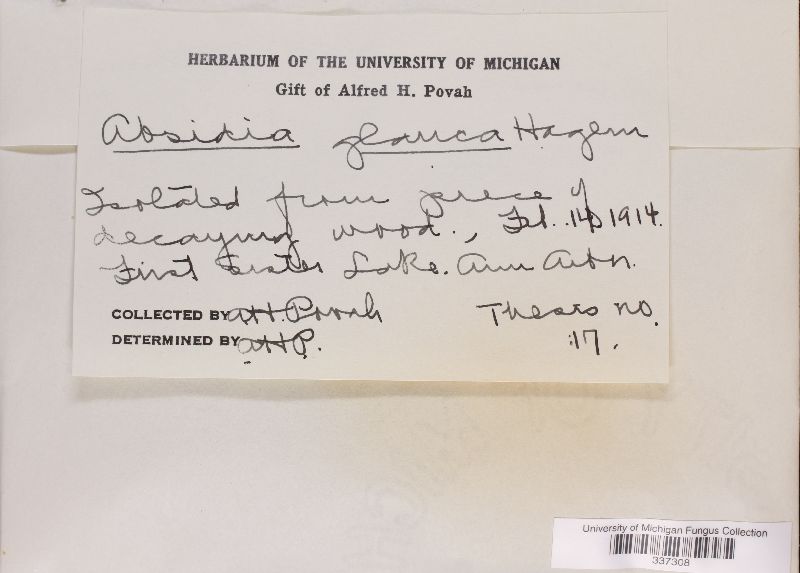 HERBARIUM OF THE UNIVERSITY OF MICHIGAN
Gift of Alfred H. Povah
Absidia glauca Hagem
Isolated from piece of
decaying wood., Feb. 14, 1914.
First Sister Lake. Ann Arbor.
COLLECTED BY AH. Povah
Thesis no.
DETERMINED BY AHP.
17.
University of Michigan Fungus Collection
337308